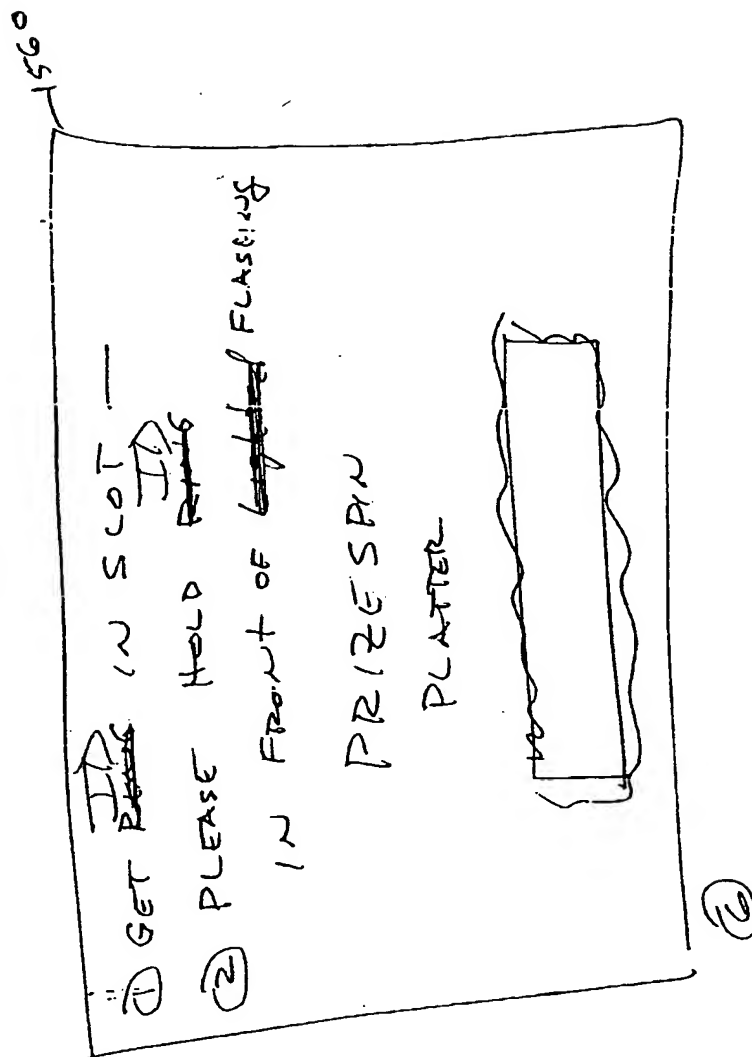 1560
① GET ID IN SLOT —
② PLEASE HOLD ID
IN FRONT OF FLASHING
PRIZESPIN
PLATTER
⑯